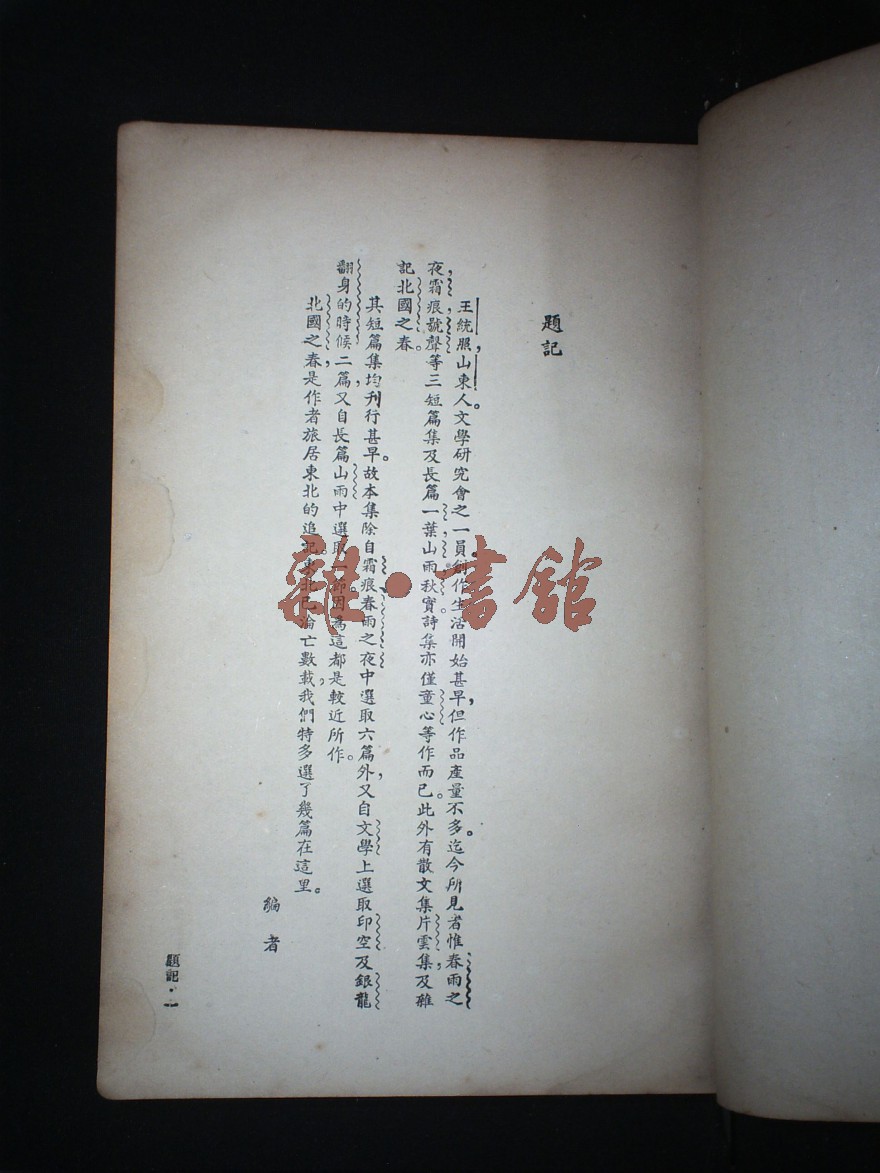 題記
王統照，山東人。文學研究會之一員。創作生活開始甚早，但作品產量不多。迄今所見者惟春雨之
夜，霜痕，號聲等三短篇集及長篇一葉，山雨，秋實。詩集亦僅童心等作而已。此外有散文集片雲集，及雜
記北國之春。
其短篇集均刊行甚早。故本集除自霜痕春雨之夜中選取六篇外，又自文學上選取印空及銀龍
翻身的時候二篇，又自長篇山雨中選取一節。因爲這都是較近所作。
北國之春是作者旅居東北的追記。東北已淪亡數載，我們特多選了幾篇在這里。
編者
題記·一
雜·書館